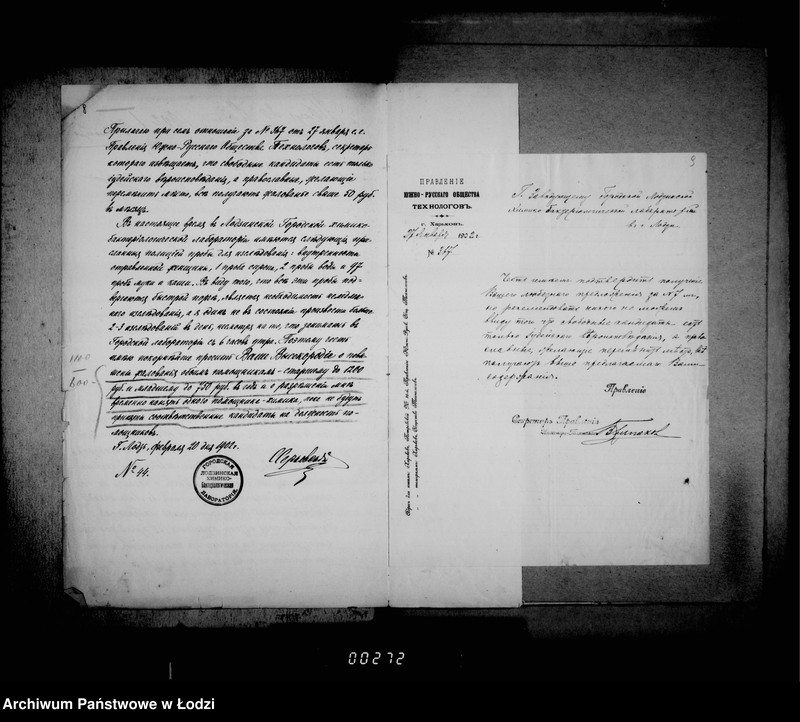 8
Прилагаю при семъ отношеніе за № 367 отъ 27 января с.г.
Правленія Южно-Русскаго Общества Технологовъ, секретарь
котораго извѣщаетъ, что свободные кандидаты есть только
іудейскаго вѣроисповѣданія, а православные, желающіе
перемѣнить мѣсто, всѣ получаютъ жалованье свыше 50 руб.
въ мѣсяцъ.
Въ настоящее время въ Лодзинской Городской химико-
бактеріологической лабораторіи имѣются слѣдующія при-
сланныя полиціей пробы для изслѣдованія: внутренности
отравленной женщины, 1 проба сырой, 2 пробы воды и 97
пробъ муки и каши. Въ виду того, что всѣ эти пробы под-
вергаются быстрой порчѣ, является необходимость
изслѣдованія, а я одинъ не въ состояніи произвести болѣе
2-3 изслѣдованій въ день, несмотря на то, что занимаюсь въ
Городской лабораторіи съ 6 часовъ утра. Поэтому честь
имѣю покорнѣйше просить Ваше Высокородіе о повы-
шеніи жалованья обоимъ помощникамъ - старшему до 1200
руб. и младшему до 750 руб. въ годъ и о разрѣшеніи мнѣ
временно нанять одного помощника-химика, пока не будутъ
пріисканы соотвѣтственные кандидаты на должность по-
мощниковъ.
Г. Лодзь, февраля 20 дня 1902 г.
№ 44.
ГОРОДСКАЯ
ЛОДЗИНСКАЯ
ХИМИКО-
БАКТЕРІОЛОГИЧЕСКАЯ
ЛАБОРАТОРІЯ.
ПРАВЛЕНІЕ
ЮЖНО-РУССКАГО ОБЩЕСТВА
ТЕХНОЛОГОВЪ.
г. Харьковъ.
27 Января 1902 г.
№ 367
9
Г. Завѣдующему Городской Лодзинской
Химико-Бактеріологической Лабораторіей
въ г. Лодзи.
Честь имѣемъ подтвердить полученіе
Вашего любезнаго предложенія за № 7
виду того что свободные кандидаты есть
только Іудейскаго Вѣроисповѣданія, а право-
славные, желающіе перемѣнить мѣсто, всѣ
получаютъ выше предлагаемаго Вами
содержанія.
Правленіе
Секретарь Правленія
00272
Archiwum Państwowe w Łodzi